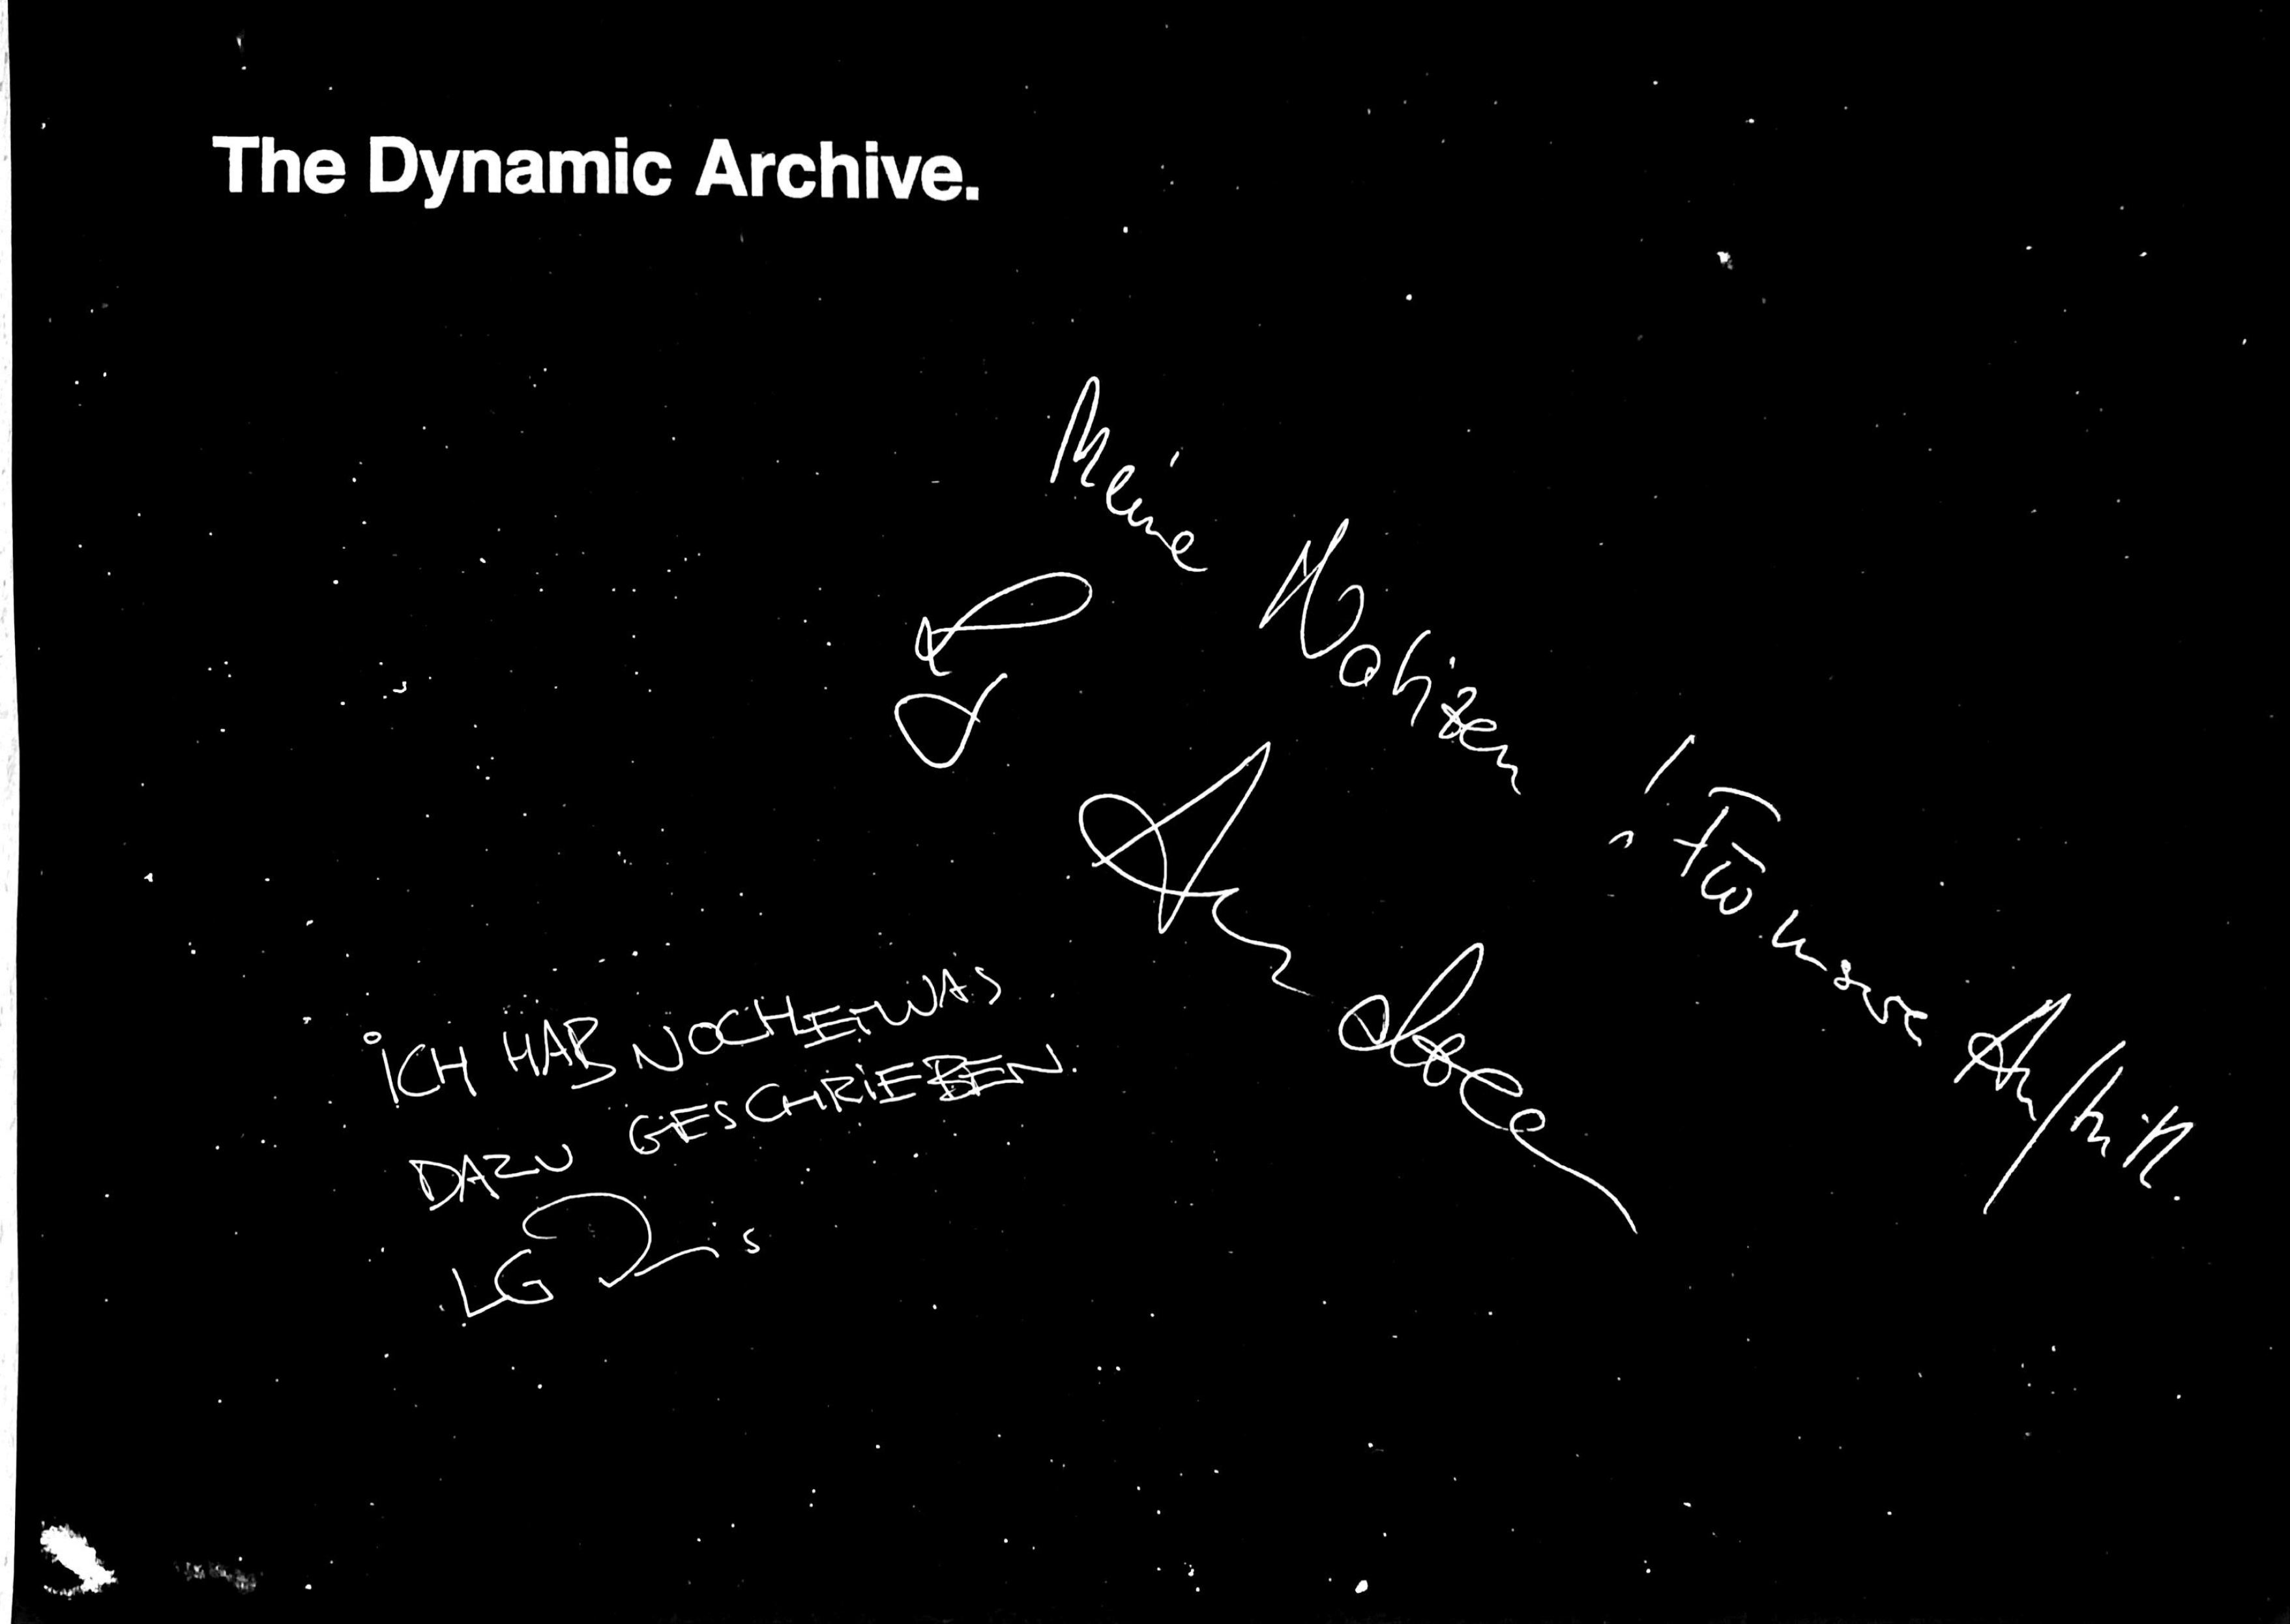 The Dynamic Archive.
Meine Notizen! Für unsere
ICH HAB NOCH ETWAS
DAZU GESCHRIEBEN.
LG